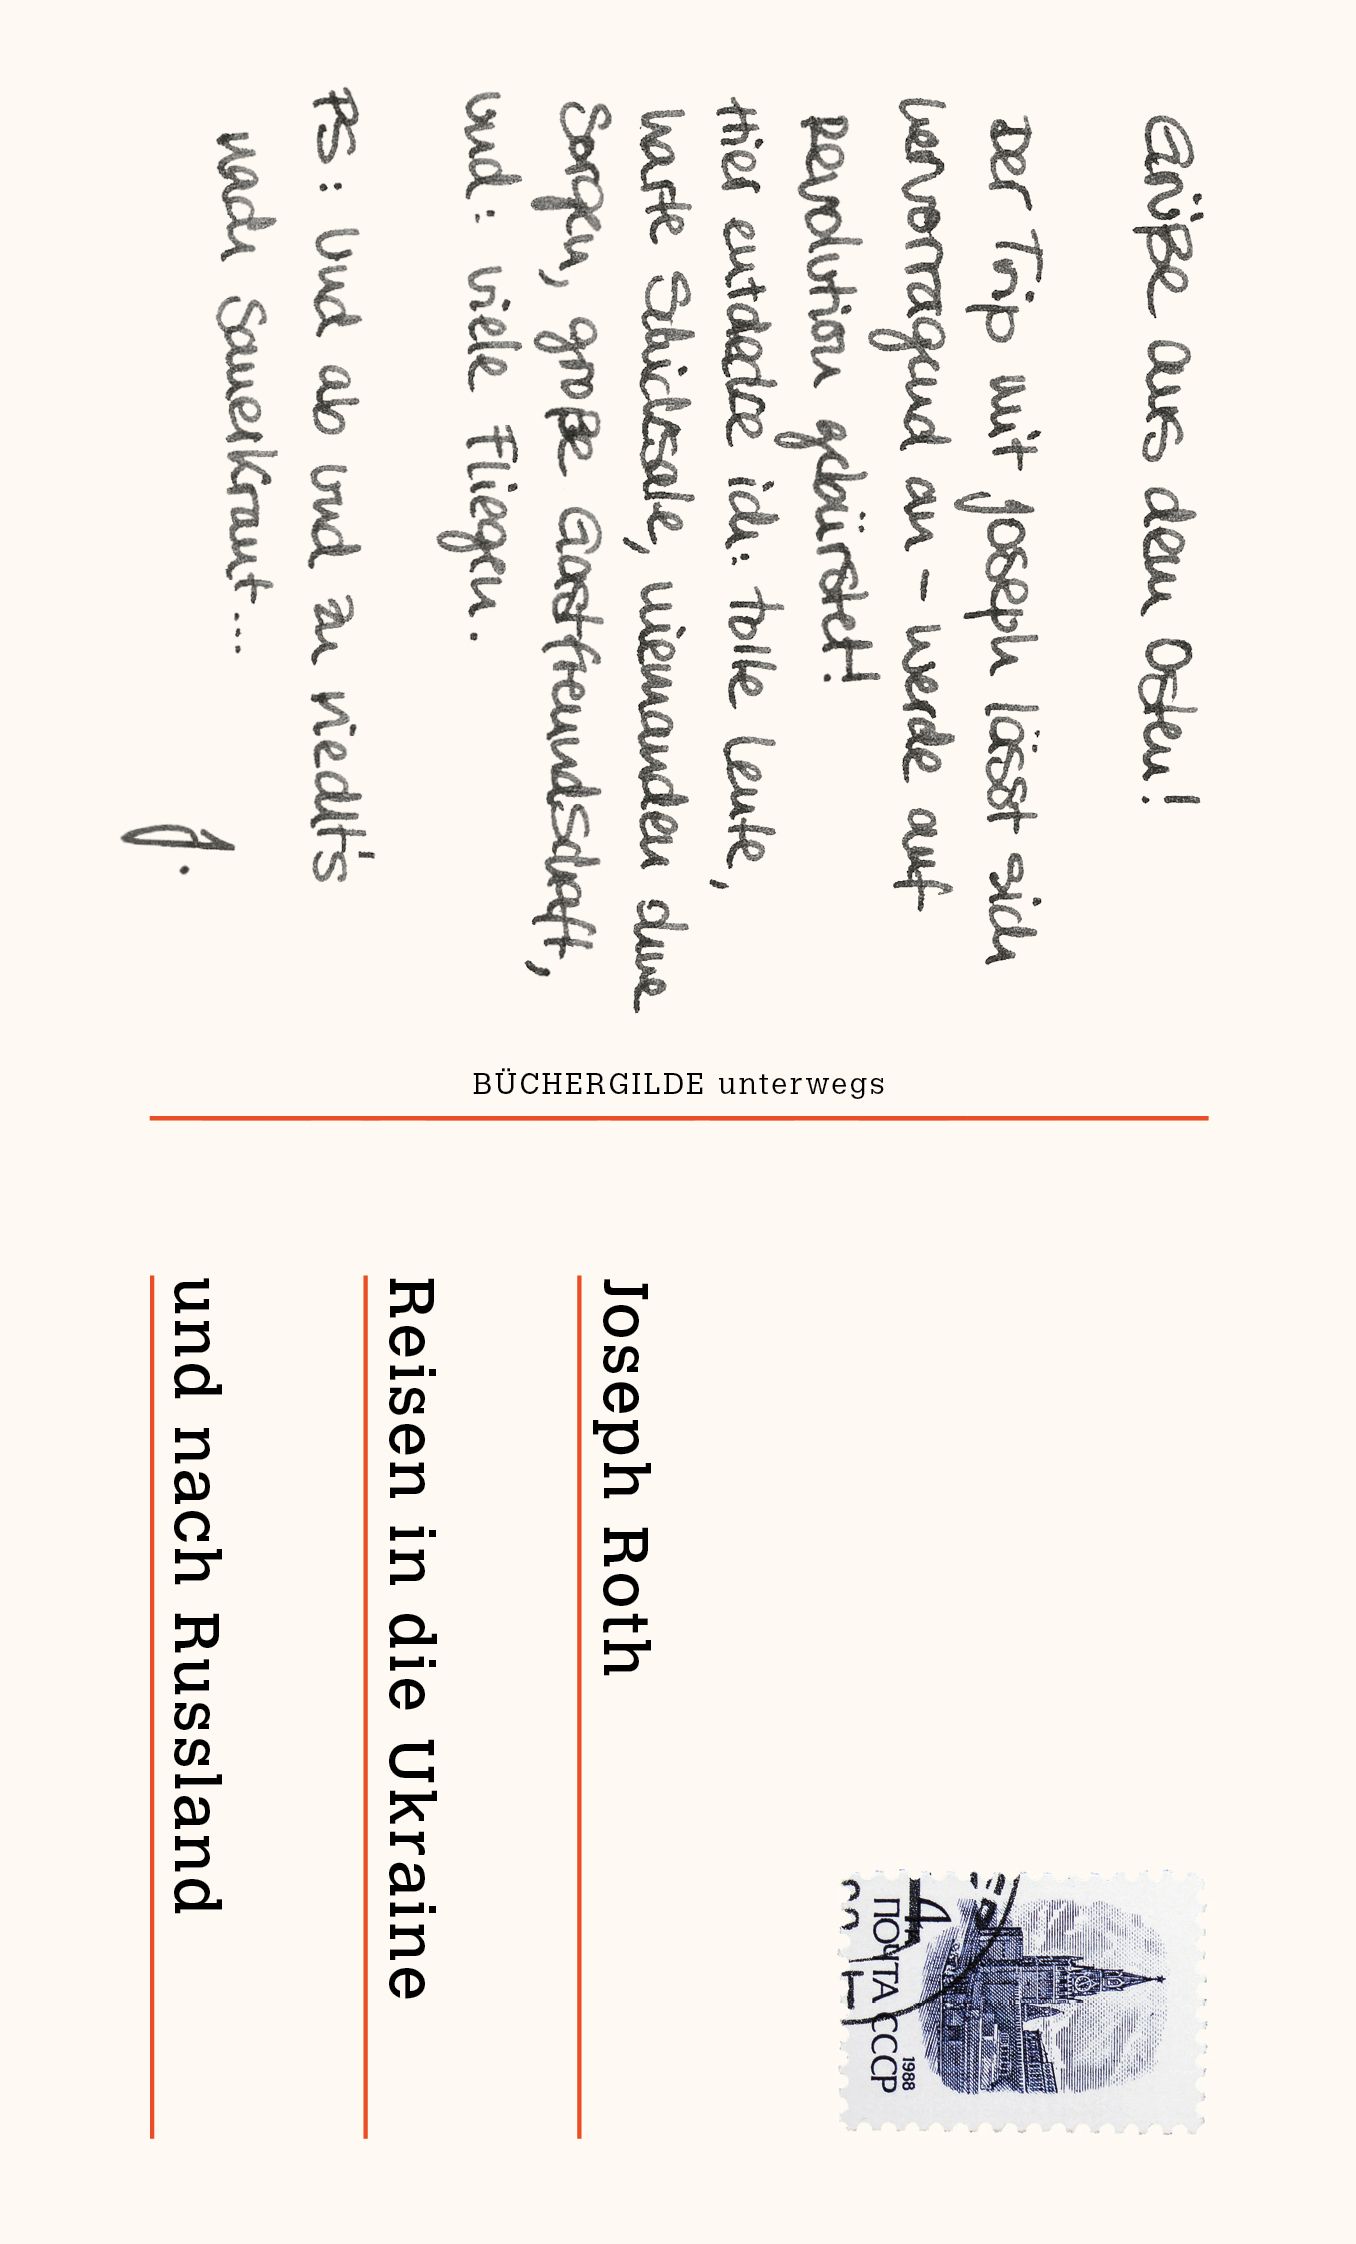 Grüße aus dem Osten!
Der Trip mit Joseph lässt sich
hervorragend an – werde auf
Revolution gebürstet!
Hier entdecke ich: tolle Leute,
harte Schicksale, niemanden ohne
Sorgen, große Gastfreundschaft,
und: viele Fliegen.
PS: Und ab und zu riecht's
nach Sauerkraut...
J.
BÜCHERGILDE unterwegs
Joseph Roth
Reisen in die Ukraine
und nach Russland
1988
ПОЧТА СССР
4